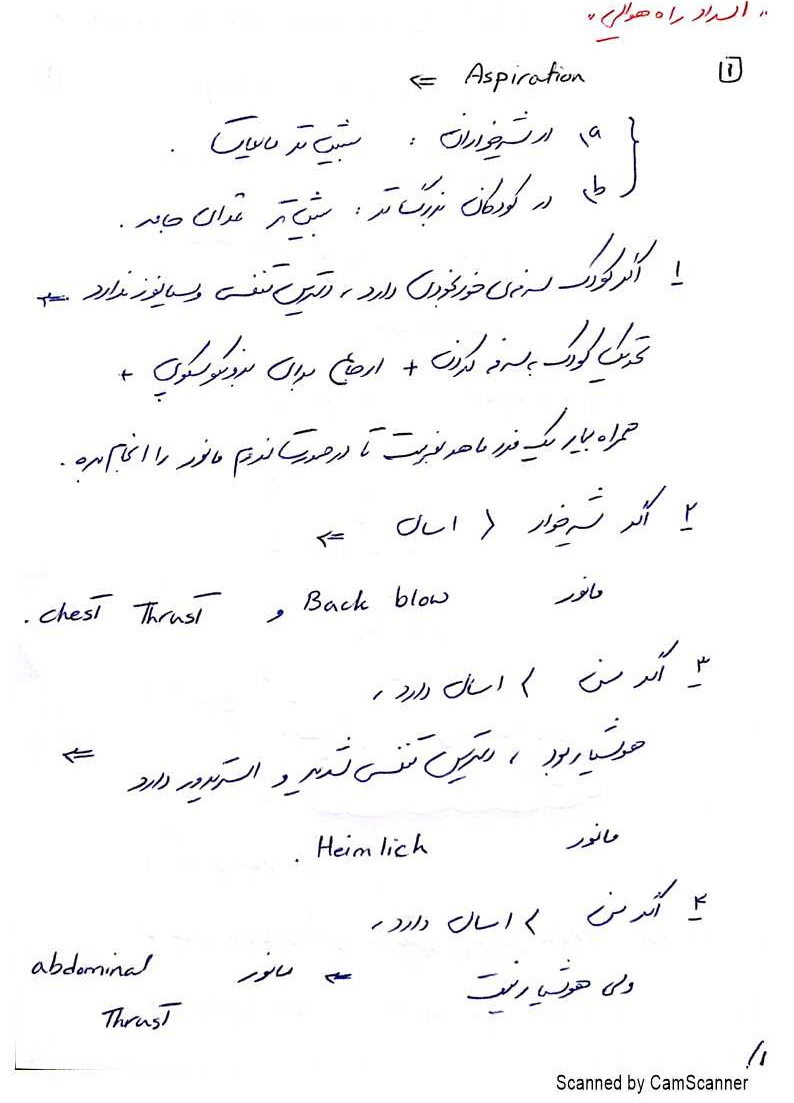 "انسداد راه هوایی"
1 Aspiration ⇐
a) در شیرخواران : بیش تر مایعات .
b) در کودکان بزرگ تر : بیش تر غذای جامد .
۱ اگر کودک سرفه‌ی خودبخودی دارد ، دیسترس تنفسی و سیانوز ندارد ⇐
تحریک کودک به سرفه کردن + ارجاع برای برونکوسکوپی +
همراه با یک فرد ماهر تا در صورت لزوم مانور را انجام بده .
۲ اگر شیرخوار < ۱سال ⇐
مانور Back blow و chest Thrust .
۳ اگر سن > ۱سال دارد ،
هوشیار بود ، دیسترس تنفسی شدید و استریدور دارد ⇐
مانور Heimlich .
۴ اگر سن > ۱سال دارد ،
ولی هوشیار نیست ⇐ مانور abdominal
Thrust
۱/
Scanned by CamScanner